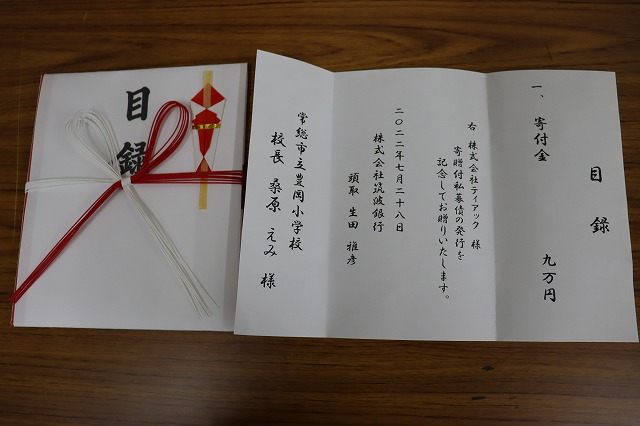 目録
目録
一、寄付金 九万円
右 株式会社ティアック 様
寄贈付私募債の発行を
記念してお贈りいたします。
二〇二二年七月二十八日
株式会社筑波銀行
頭取 生田 雅彦
常総市立豊岡小学校
校長 桑原 えみ 様